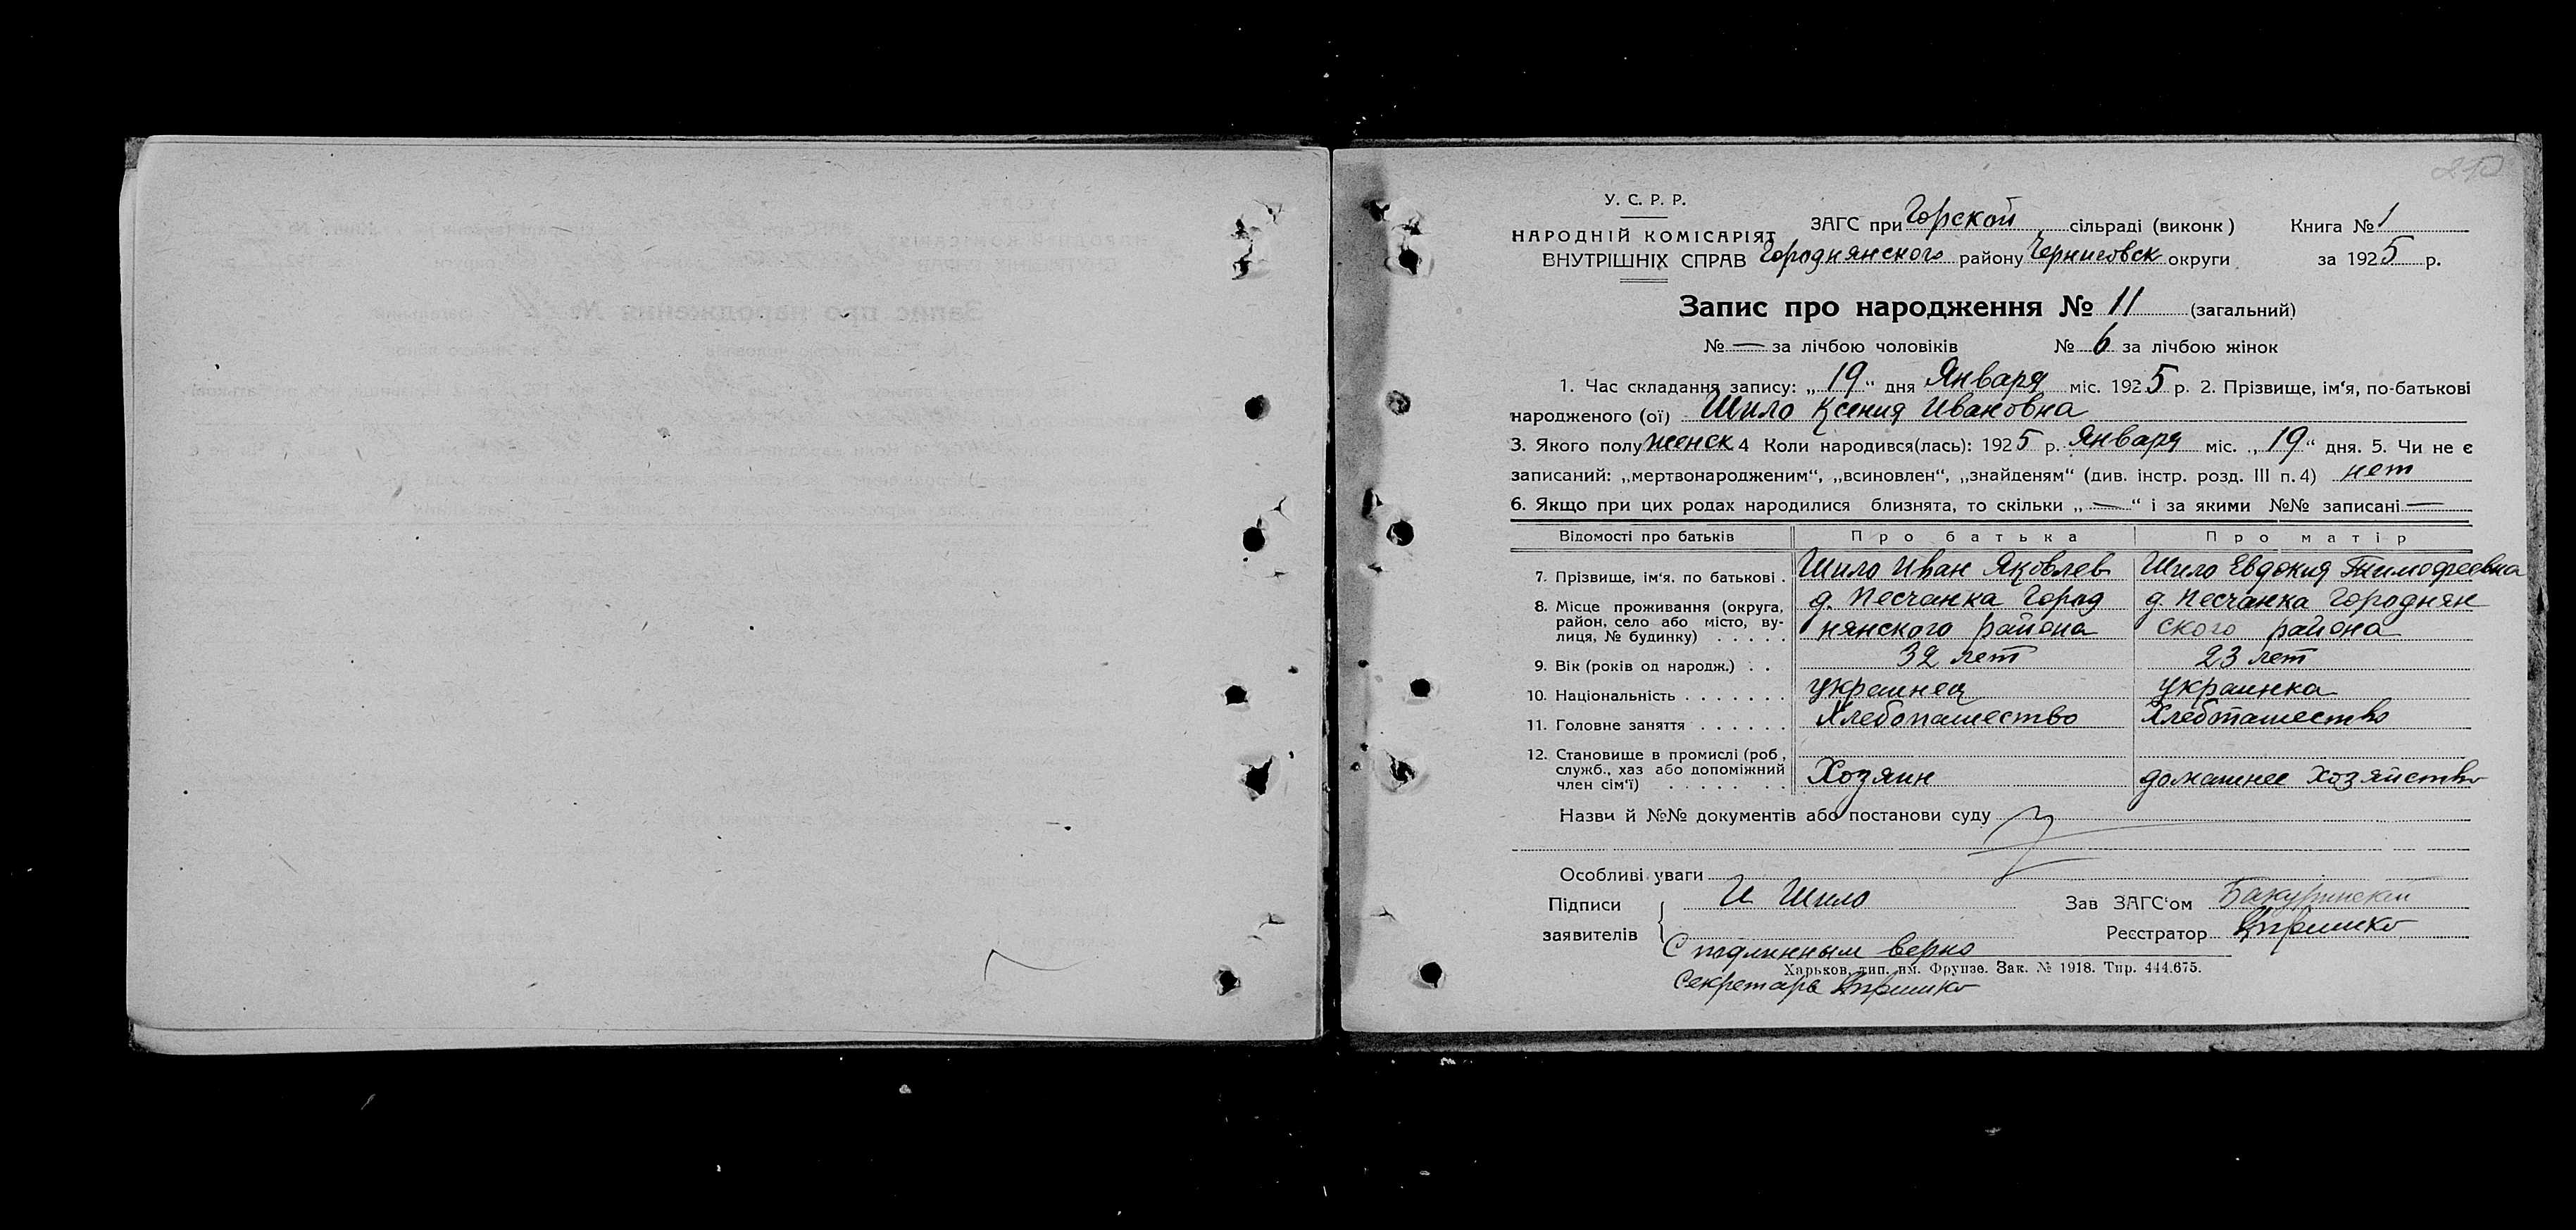 У. С. Р. Р.
НАРОДНІЙ КОМІСАРІЯТ
ВНУТРІШНІХ СПРАВ
ЗАГС при Горской сільраді (виконк)
Городнянского району Черниговск округи
Книга № 1
за 1925 р.
Запис про народження № 11 (загальний)
№ — за лічбою чоловіків № 6 за лічбою жінок
1. Час складання запису: „19“ дня Января міс. 1925 р. 2. Прізвище, ім‘я, по-батькові
народженого (ої) Шило Ксения Ивановна
3. Якого полу женск 4 Коли народився(лась): 1925 р. Января міс. „19“ дня. 5. Чи не є
записаний: „мертвонародженим“, „всиновлен“, „знайденям“ (див. інстр. розд. III п. 4) нет
6. Якщо при цих родах народилися близнята, то скільки „—“ і за якими №№ записані —
Відомості про батьків Про батька Про матір
7. Прізвище, ім‘я. по батькові . Шило Иван Яковлев Шило Евдокия Тимофеевна
8. Місце проживання (округа, район, село або місто, ву-лиця, № будинку) . . . . . д. Песчанка Город д. Песчанка Городнян
нянского района ского района
9. Вік (років од народж.) . . 32 лет 23 лет
10. Національність . . . . . . . украинец украинка
11. Головне заняття . . . . . . Хлебопашество Хлебопашество
12. Становище в промислі (роб, служб., хаз або допоміжний член сім‘ї) . . . . . . . Хозяин домашнее хозяйство
Назви й №№ документів або постанови суду
Особливі уваги
Підписи
заявителів
И Шило
Зав ЗАГС‘ом
Реєстратор
С подлинным верно
Харьков, тип. им. Фрунзе. Зак. № 1918. Тир. 444.675.
Секретарь